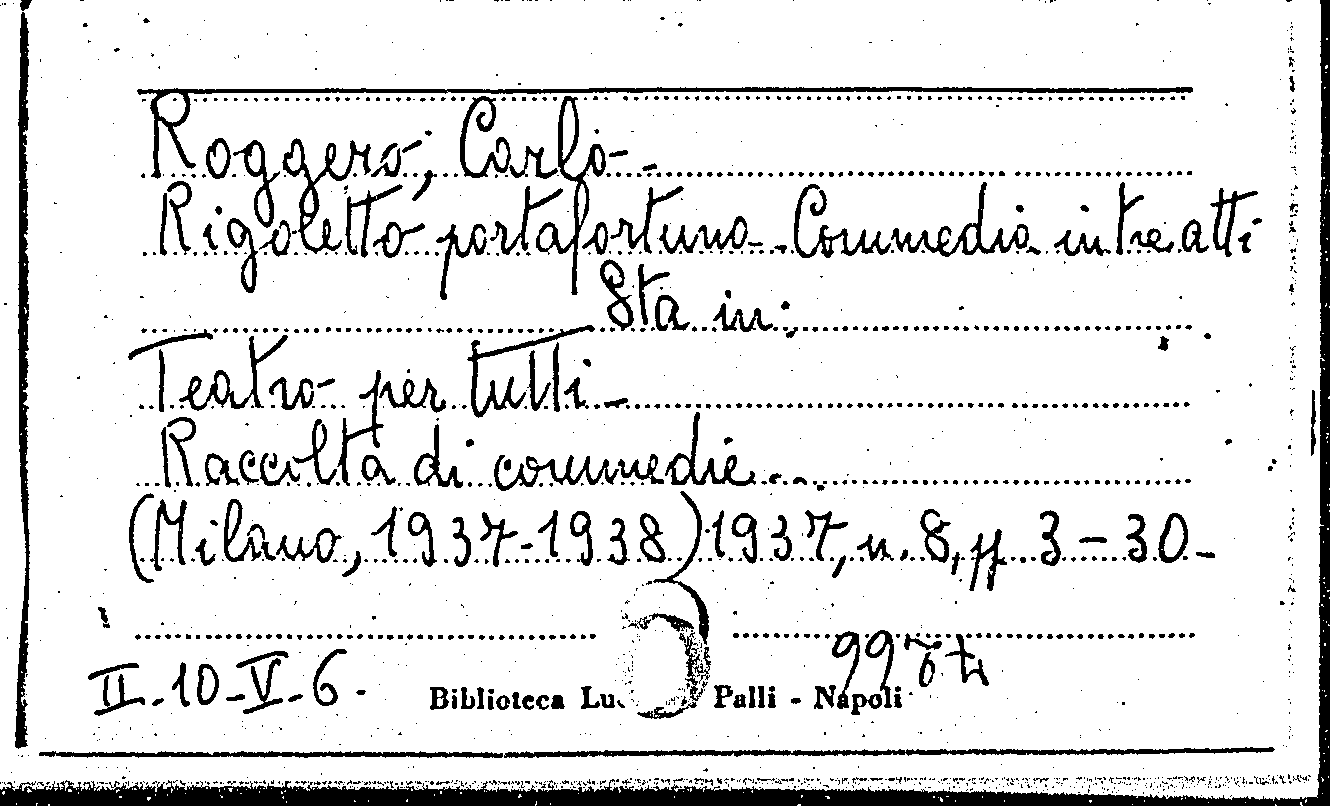 Roggero, Carlo-.
Rigoletto portafortuna-. Commedia in tre atti
Sta in:
Teatro per tutti-
Raccolta di commedie...
(Milano, 1937-1938) 1937, n. 8, pp. 3-30-
II-10-V-6-
Biblioteca Palli - Napoli